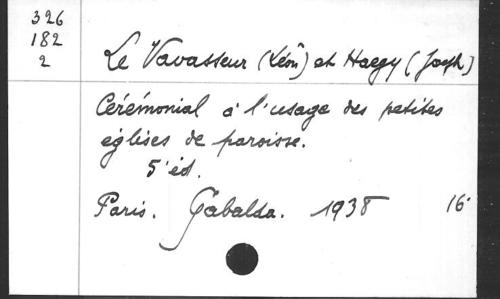 326
182
2
Le Vavasseur (Léon) et Haegy (Joseph)
Cérémonial à l'usage des petites
églises de paroisse.
5'éd.
Paris. Gabalda. 1938 16°